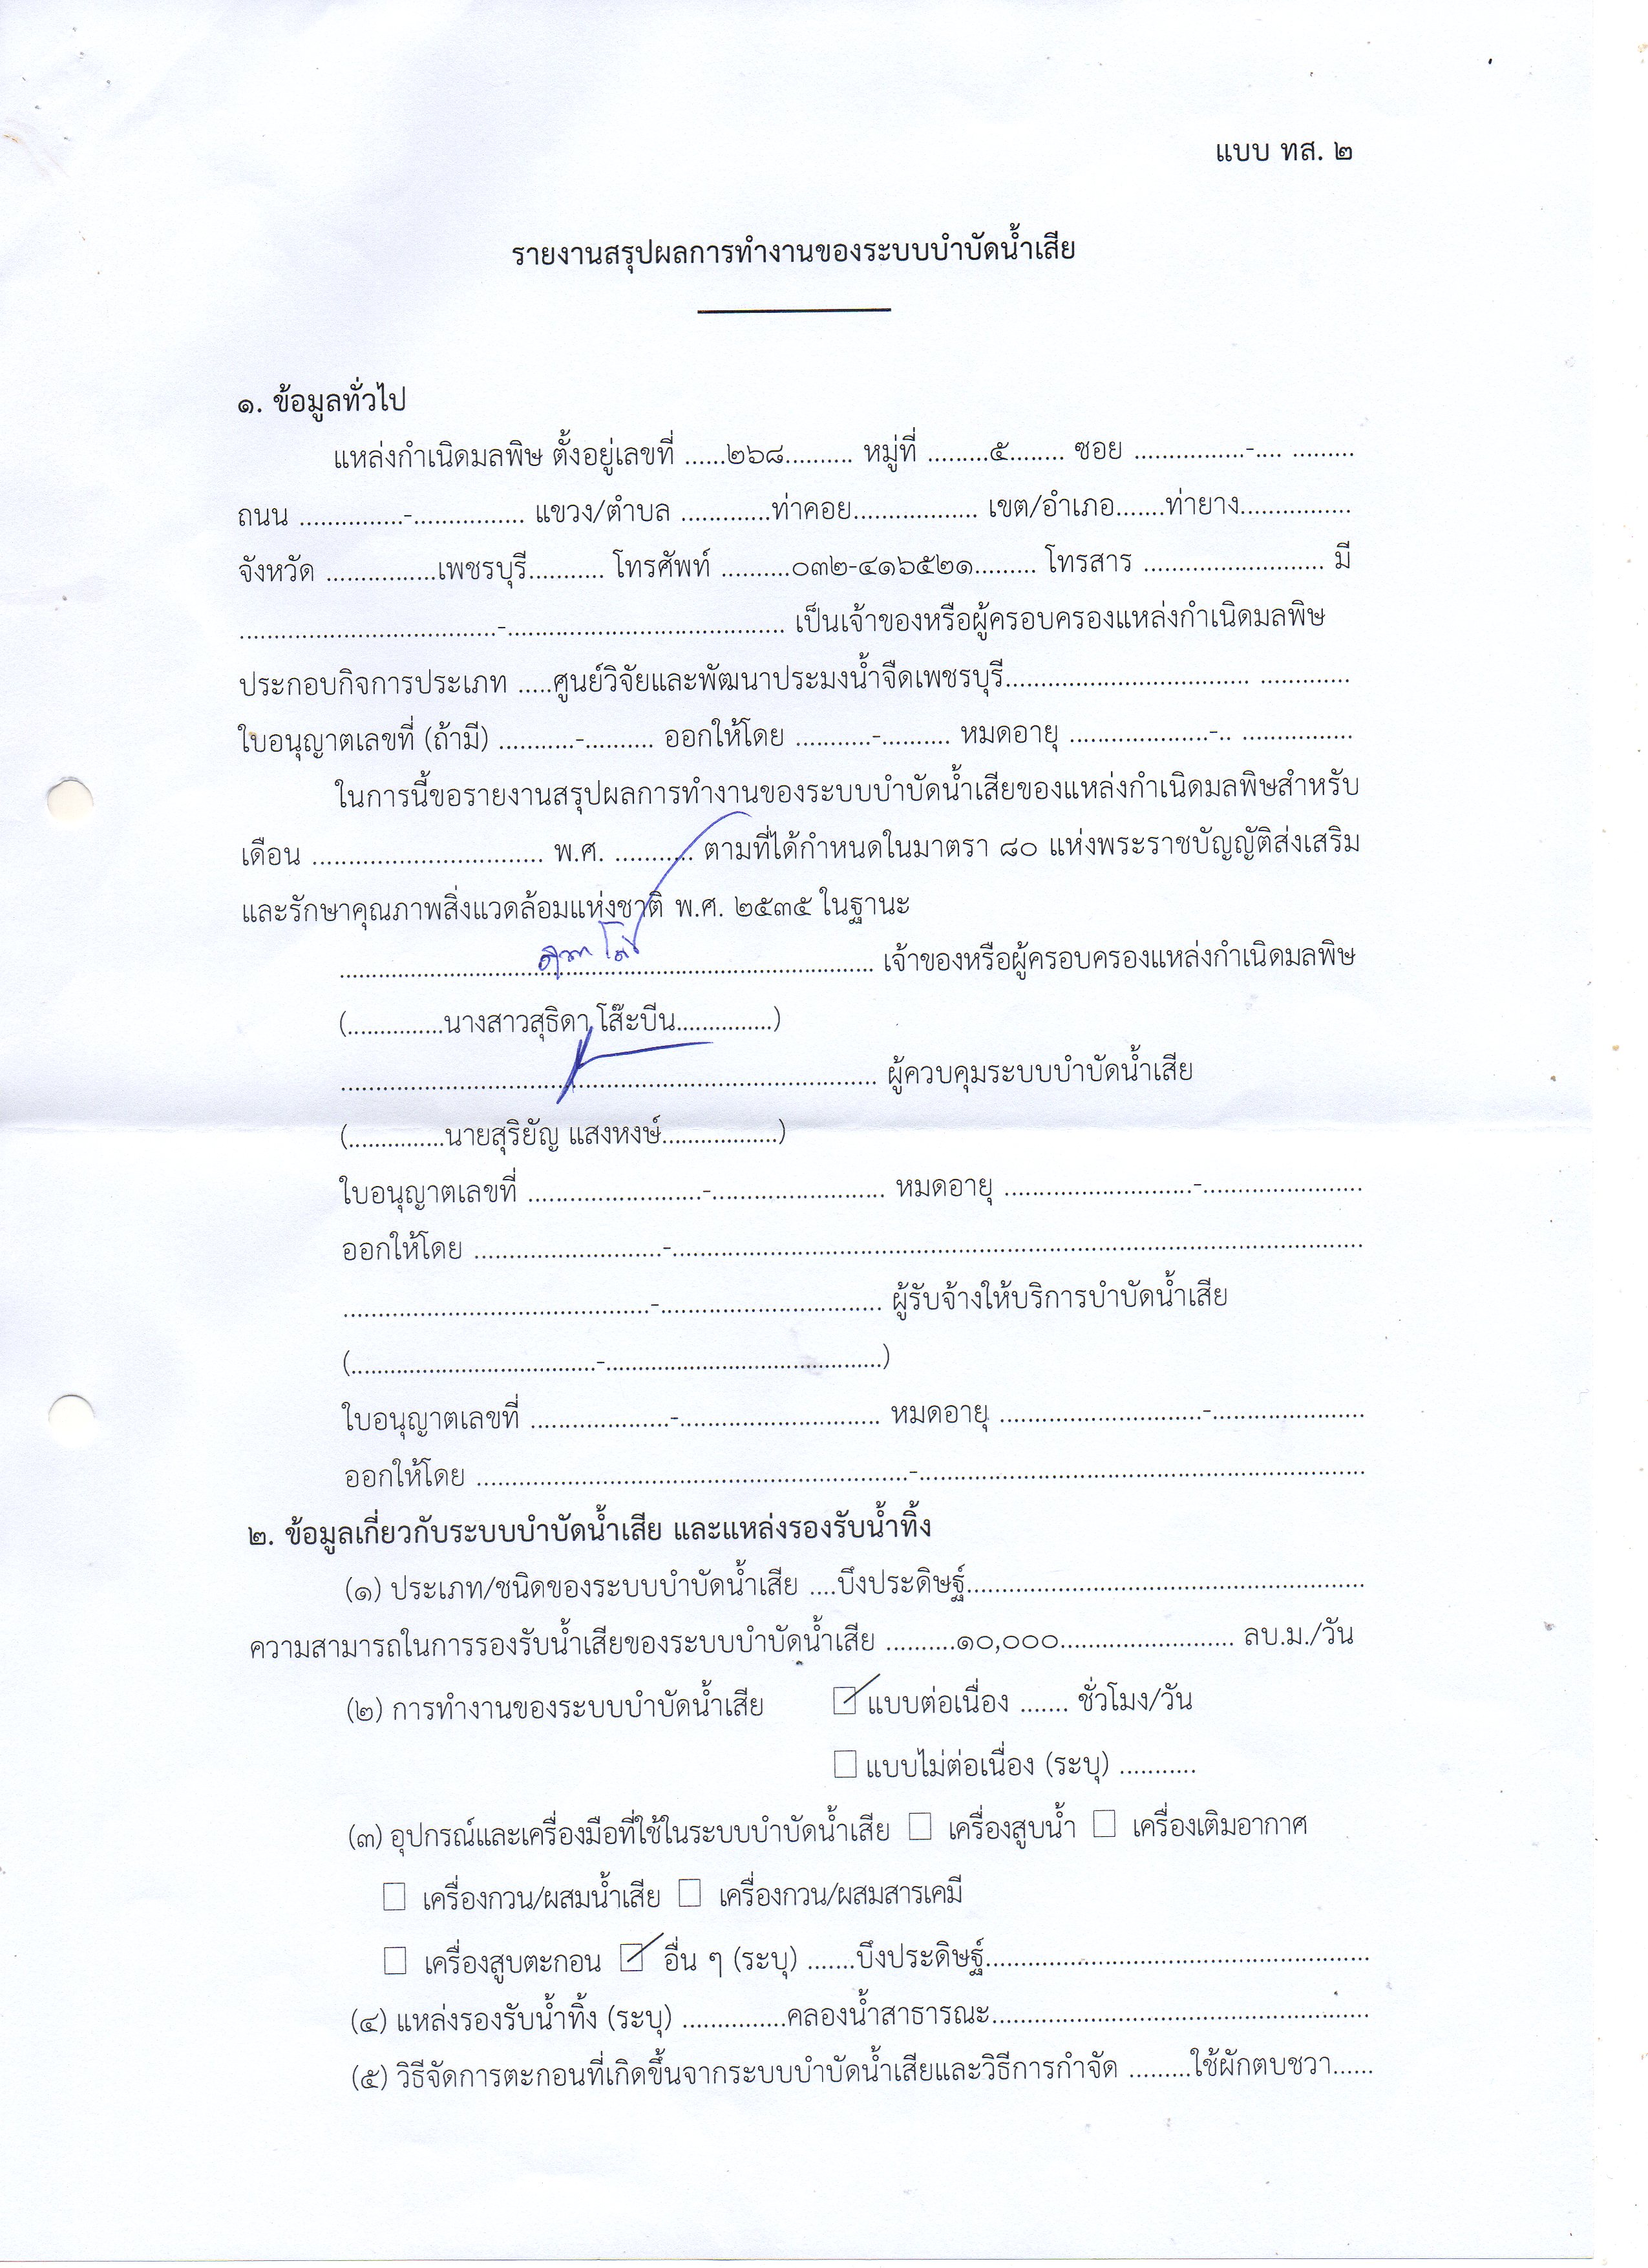 แบบ ทส. ๒
รายงานสรุปผลการทำงานของระบบบำบัดน้ำเสีย
๑. ข้อมูลทั่วไป
แหล่งกำเนิดมลพิษ ตั้งอยู่เลขที่ ......๒๖๘.......... หมู่ที่ .........๕........ ซอย ................-.... .........
ถนน ...............-................ แขวง/ตำบล .............ท่าคอย.................. เขต/อำเภอ.......ท่ายาง................
จังหวัด ................เพชรบุรี........... โทรศัพท์ ..........๐๓๒-๔๑๖๕๒๑......... โทรสาร .......................... มี
.....................................-........................................ เป็นเจ้าของหรือผู้ครอบครองแหล่งกำเนิดมลพิษ
ประกอบกิจการประเภท .....ศูนย์วิจัยและพัฒนาประมงน้ำจืดเพชรบุรี................................... .............
ใบอนุญาตเลขที่ (ถ้ามี) ...........-.......... ออกให้โดย ...........-.......... หมดอายุ ....................-.. ................
ในการนี้ขอรายงานสรุปผลการทำงานของระบบบำบัดน้ำเสียของแหล่งกำเนิดมลพิษสำหรับ
เดือน ................................. พ.ศ. ........... ตามที่ได้กำหนดในมาตรา ๘๐ แห่งพระราชบัญญัติส่งเสริม
และรักษาคุณภาพสิ่งแวดล้อมแห่งชาติ พ.ศ. ๒๕๓๕ ในฐานะ
............................................................................. เจ้าของหรือผู้ครอบครองแหล่งกำเนิดมลพิษ
(..............นางสาวสุธิดา โส๊ะบีน..............)
............................................................................. ผู้ควบคุมระบบบำบัดน้ำเสีย
(..............นายสุริยัญ แสงหงษ์.................)
ใบอนุญาตเลขที่ .........................-......................... หมดอายุ ...........................-.......................
ออกให้โดย ...........................-....................................................................................................
............................................-................................ ผู้รับจ้างให้บริการบำบัดน้ำเสีย
(....................................-........................................)
ใบอนุญาตเลขที่ ....................-............................. หมดอายุ .............................-......................
ออกให้โดย ..............................................................-................................................................
๒. ข้อมูลเกี่ยวกับระบบบำบัดน้ำเสีย และแหล่งรองรับน้ำทิ้ง
(๑) ประเภท/ชนิดของระบบบำบัดน้ำเสีย ....บึงประดิษฐ์.........................................................
ความสามารถในการรองรับน้ำเสียของระบบบำบัดน้ำเสีย ..........๑๐,๐๐๐......................... ลบ.ม./วัน
(๒) การทำงานของระบบบำบัดน้ำเสีย ☑ แบบต่อเนื่อง ....... ชั่วโมง/วัน
☐ แบบไม่ต่อเนื่อง (ระบุ) ...........
(๓) อุปกรณ์และเครื่องมือที่ใช้ในระบบบำบัดน้ำเสีย ☐ เครื่องสูบน้ำ ☐ เครื่องเติมอากาศ
☐ เครื่องกวน/ผสมน้ำเสีย ☐ เครื่องกวน/ผสมสารเคมี
☐ เครื่องสูบตะกอน ☑ อื่น ๆ (ระบุ) .......บึงประดิษฐ์.......................................................
(๔) แหล่งรองรับน้ำทิ้ง (ระบุ) ...............คลองน้ำสาธารณะ......................................................
(๕) วิธีจัดการตะกอนที่เกิดขึ้นจากระบบบำบัดน้ำเสียและวิธีการกำจัด .........ใช้ผักตบชวา......